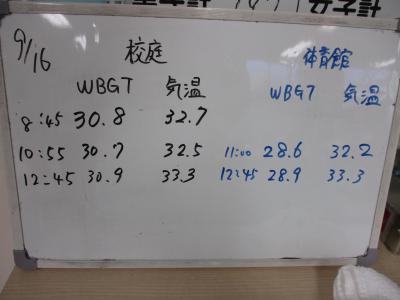 9/16 校庭 体育館
WBGT 気温 WBGT 気温
8:45 30.8 32.7
10:55 30.7 32.5 11:00 28.6 32.2
12:45 30.9 33.3 12:45 28.9 33.3